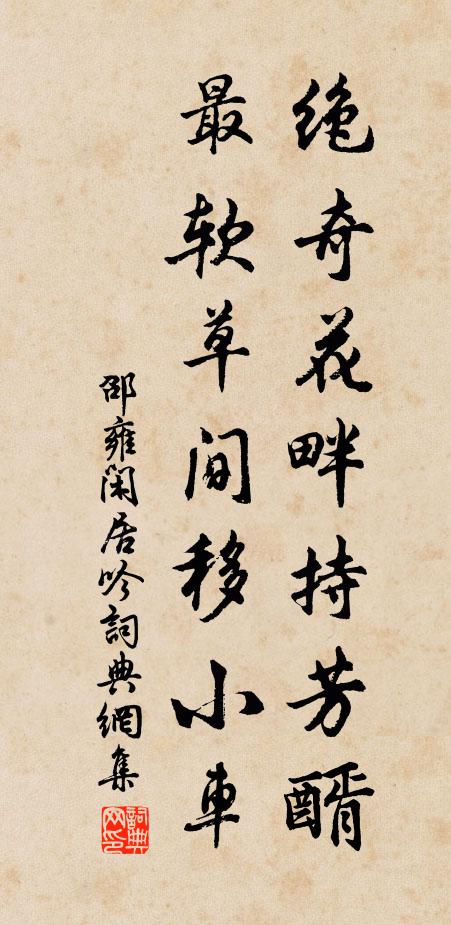 绝奇花畔持芳醑
最软草间移小车
邵雍闲居吟詞典網集
詞典网印